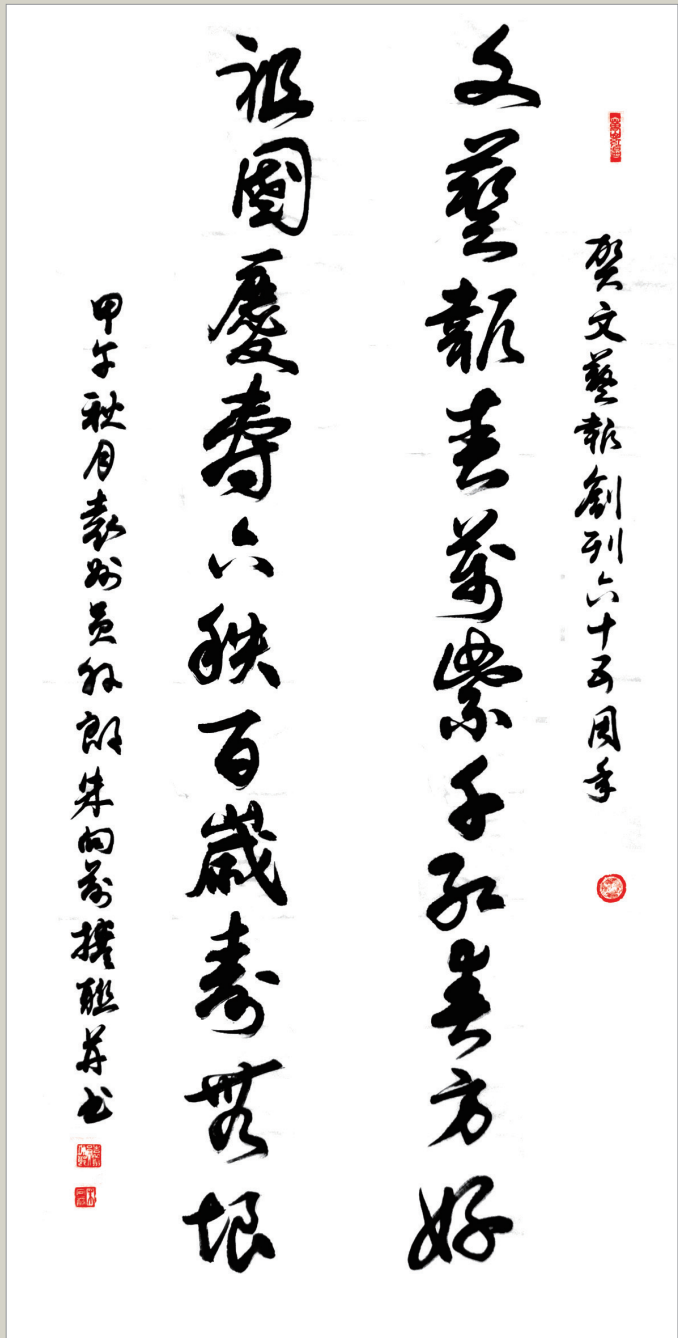 賀文藝報創刊六十五周年
文藝報春萬紫千紅春方好
祖國慶壽六秩百歲壽無垠
甲午秋月袁州員外郎朱向前撰聯并书